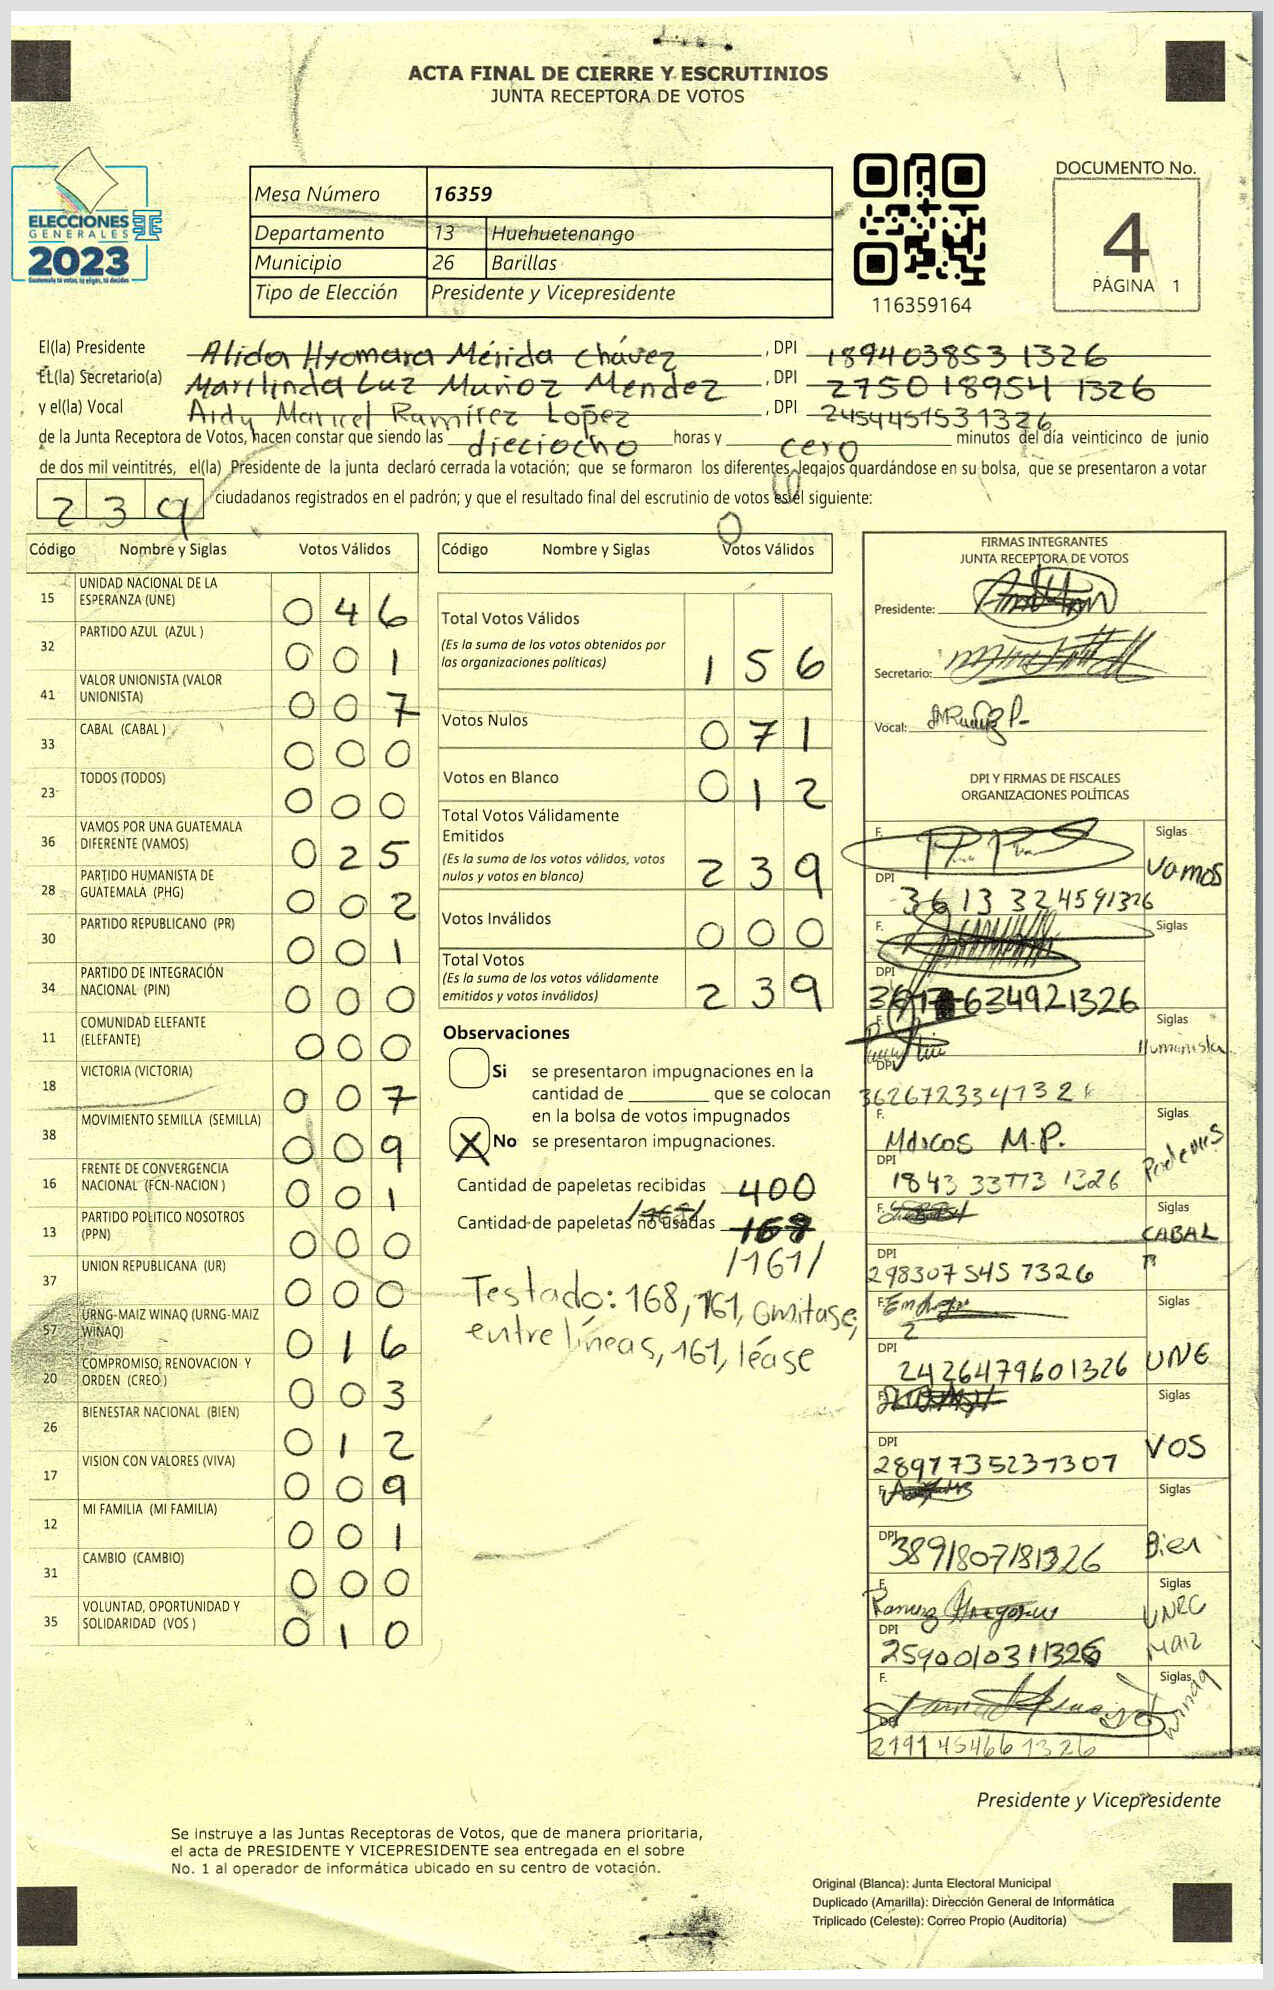 ACTA FINAL DE CIERRE Y ESCRUTINIOS
JUNTA RECEPTORA DE VOTOS
ELECCIONES
GENERALES
2023
Guatemala tú votas, tú eliges, tú decides
Mesa Número 16359
Departamento 13 Huehuetenango
Municipio 26 Barillas
Tipo de Elección Presidente y Vicepresidente
116359164
DOCUMENTO No.
4
PÁGINA 1
El(la) Presidente Alida Hyomara Mérida Chávez, DPI 189403853 1326
EL(la) Secretario(a) Marilinda Luz Muñoz Mendez, DPI 275018954 1326
y el(la) Vocal Aidy Maricel Ramírez López, DPI 2454451531326
de la Junta Receptora de Votos, hacen constar que siendo las dieciocho horas y cero minutos del día veinticinco de junio
de dos mil veintitrés, el(la) Presidente de la junta declaró cerrada la votación; que se formaron los diferentes legajos quardándose en su bolsa, que se presentaron a votar
239 ciudadanos registrados en el padrón; y que el resultado final del escrutinio de votos es el siguiente:
Código Nombre y Siglas Votos Válidos
15 UNIDAD NACIONAL DE LA ESPERANZA (UNE) 046
32 PARTIDO AZUL (AZUL ) 001
41 VALOR UNIONISTA (VALOR UNIONISTA) 007
33 CABAL (CABAL ) 000
23 TODOS (TODOS) 000
36 VAMOS POR UNA GUATEMALA DIFERENTE (VAMOS) 025
28 PARTIDO HUMANISTA DE GUATEMALA (PHG) 002
30 PARTIDO REPUBLICANO (PR) 001
34 PARTIDO DE INTEGRACIÓN NACIONAL (PIN) 000
11 COMUNIDAD ELEFANTE (ELEFANTE) 000
18 VICTORIA (VICTORIA) 007
38 MOVIMIENTO SEMILLA (SEMILLA) 009
16 FRENTE DE CONVERGENCIA NACIONAL (FCN-NACION ) 001
13 PARTIDO POLITICO NOSOTROS (PPN) 000
37 UNION REPUBLICANA (UR) 000
57 URNG-MAIZ WINAQ (URNG-MAIZ WINAQ) 016
20 COMPROMISO, RENOVACION Y ORDEN (CREO ) 003
26 BIENESTAR NACIONAL (BIEN) 012
17 VISION CON VALORES (VIVA) 009
12 MI FAMILIA (MI FAMILIA) 001
31 CAMBIO (CAMBIO) 000
35 VOLUNTAD, OPORTUNIDAD Y SOLIDARIDAD (VOS ) 010
Código Nombre y Siglas Votos Válidos
Total Votos Válidos
(Es la suma de los votos obtenidos por
las organizaciones políticas) 156
Votos Nulos 071
Votos en Blanco 012
Total Votos Válidamente
Emitidos
(Es la suma de los votos válidos, votos
nulos y votos en blanco) 239
Votos Inválidos 000
Total Votos
(Es la suma de los votos válidamente
emitidos y votos inválidos) 239
Observaciones
Si se presentaron impugnaciones en la
cantidad de ________ que se colocan
en la bolsa de votos impugnados
X No se presentaron impugnaciones.
Cantidad de papeletas recibidas 400
Cantidad de papeletas no usadas
/161/
Testado: 168, 161, omitase;
entre líneas, 161, léase
FIRMAS INTEGRANTES
JUNTA RECEPTORA DE VOTOS
Presidente:
Secretario:
Vocal:
DPI Y FIRMAS DE FISCALES
ORGANIZACIONES POLÍTICAS
F. Siglas
Vamos
DPI
3613 324591326
F. Siglas
DPI
634921326
F. Siglas
Humanista
DPI
F. Siglas
Marcos M.P.
Podemos
DPI
1843 33773 1326
F. Siglas
CABAL
DPI
298307545 1326
F. Siglas
DPI
2426479601326 UNE
F.
Siglas
DPI VOS
2897735231307
F. Siglas
DPI
3891807181326 Bien
F. Siglas
Ramirez
URNG
DPI Maiz
2590010311326
F. Siglas
Winaq
DPI
2191454661326
Presidente y Vicepresidente
Se instruye a las Juntas Receptoras de Votos, que de manera prioritaria,
el acta de PRESIDENTE Y VICEPRESIDENTE sea entregada en el sobre
No. 1 al operador de informática ubicado en su centro de votación.
Original (Blanca): Junta Electoral Municipal
Duplicado (Amarilla): Dirección General de Informática
Triplicado (Celeste): Correo Propio (Auditoría)